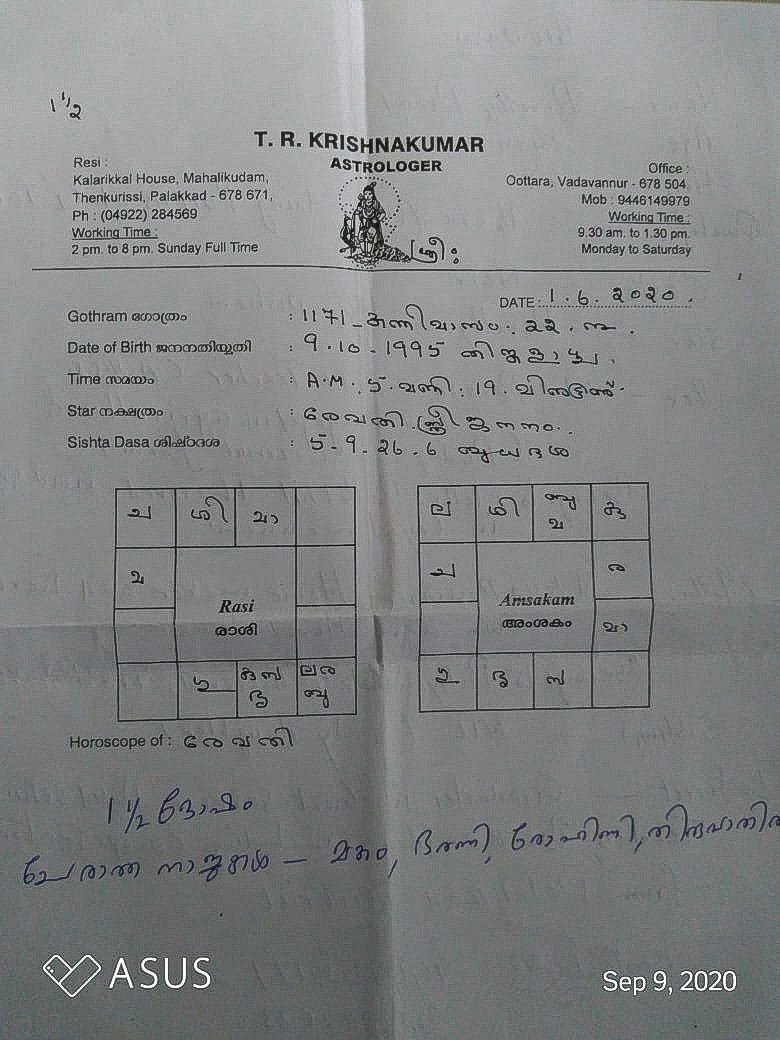 1 1/2
T. R. KRISHNAKUMAR
ASTROLOGER
Resi :
Kalarikkal House, Mahalikudam,
Thenkurissi, Palakkad - 678 671,
Ph : (04922) 284569
Working Time :
2 pm. to 8 pm. Sunday Full Time
Office :
Oottara, Vadavannur - 678 504
Mob : 9446149979
Working Time :
9.30 am. to 1.30 pm.
Monday to Saturday
ശ്രീ:
DATE: 1.6.2020.
Gothram ഗോത്രം : 1171 കന്നിമാസം. 22.
Date of Birth ജനനതിയ്യതി : 9.10-1995 തിങ്കളാഴ്ച.
Time സമയം : A.M. 5. മണി. 19. മിനുട്ട്.
Star നക്ഷത്രം : രേവതി സ്ത്രീ ജനനം..
Sishta Dasa ശിഷ്ടദശ : 5-9-26.6 ബുധദശ
ച ശി മാ
മ
Rasi
രാശി
ല ശി
ച
Amsakam
അംശകം
മാ
Horoscope of : രേവതി
1 1/2 ദോഷം
ചേരാത്ത നാളുകൾ – മകം, ഭരണി, രോഹിണി, തിരുവാതിര
ASUS
Sep 9, 2020